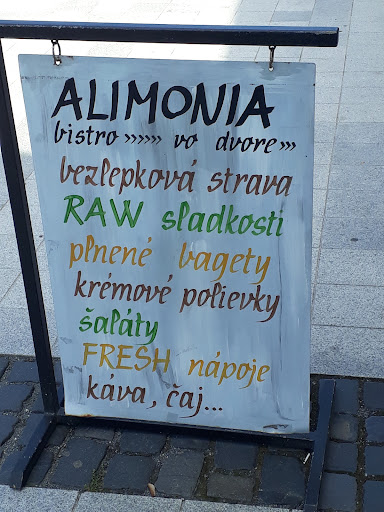 ALIMONIA
bistro »»» vo dvore »›
bezlepková strava
RAW sladkosti
plnené bagety
krémové polievky
šaláty
FRESH nápoje
káva, čaj...